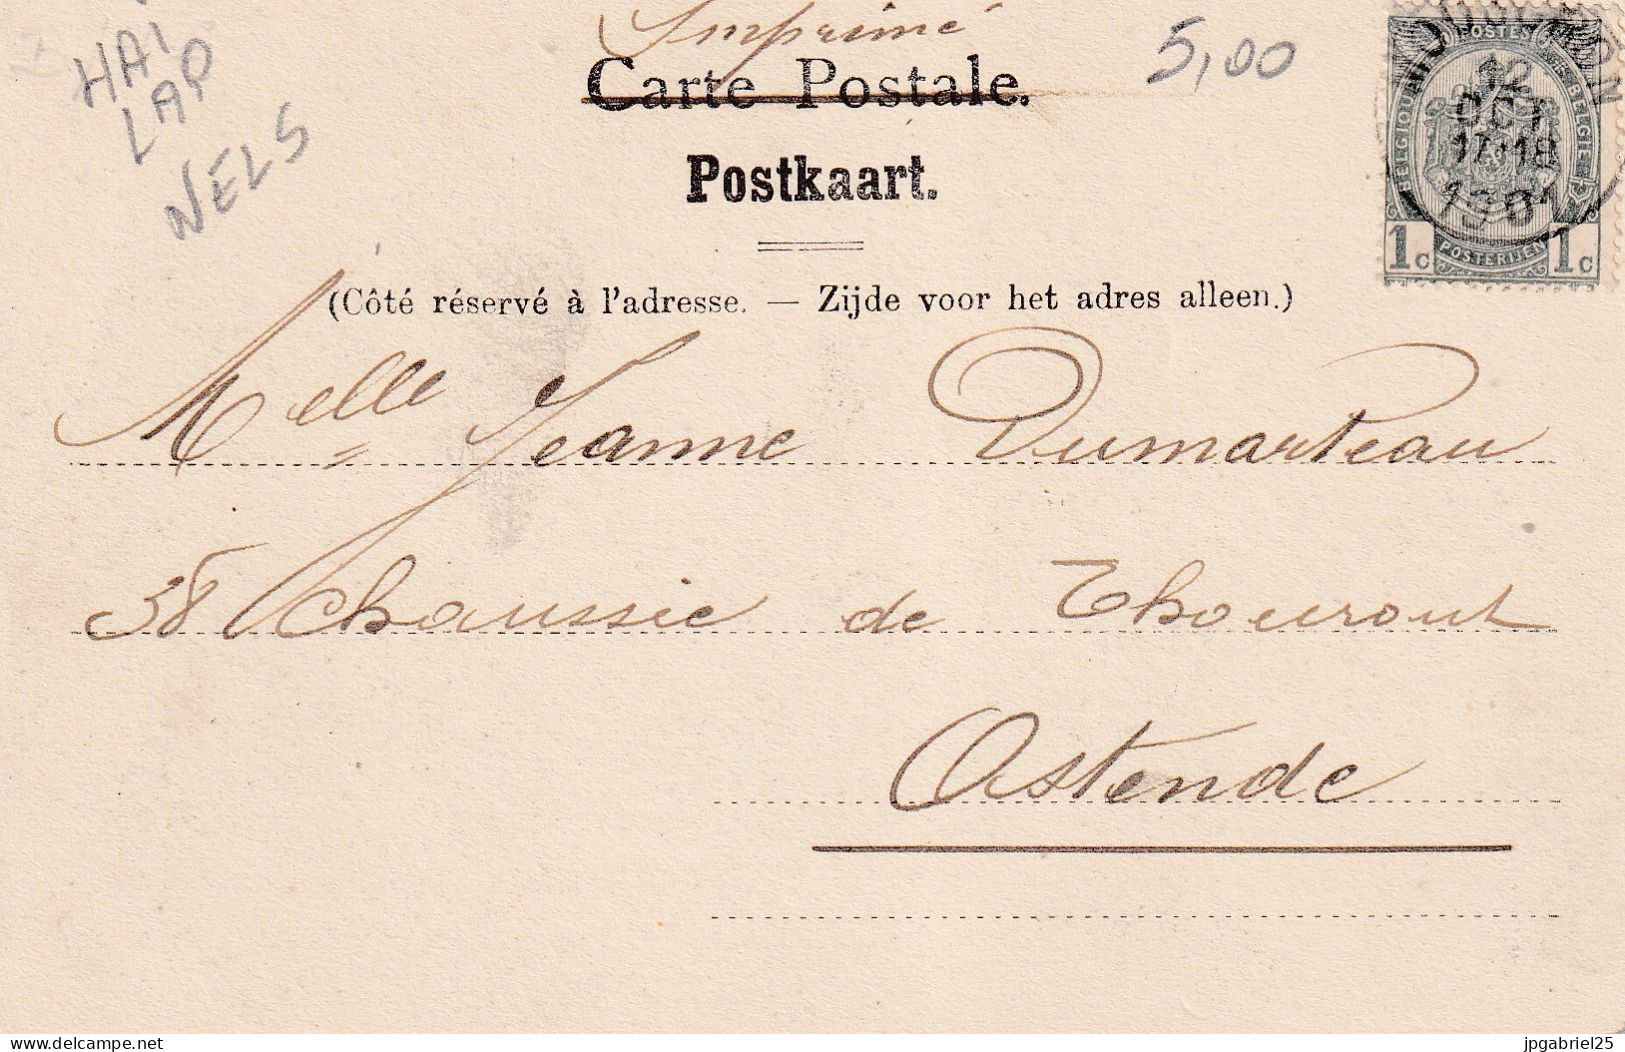 Imprimé
Carte Postale.
Postkaart.
(Côté réservé à l'adresse. — Zijde voor het adres alleen.)
HAI
LAP
NELS
5,00
POSTES
BELGIQUE
BELGIE
12
OCT
17-18
1901
1c POSTERIJEN 1c
Melle Jeanne Dumarteau
38 Chaussie de Thourout
Ostende
delcampe.net
jpgabriel25